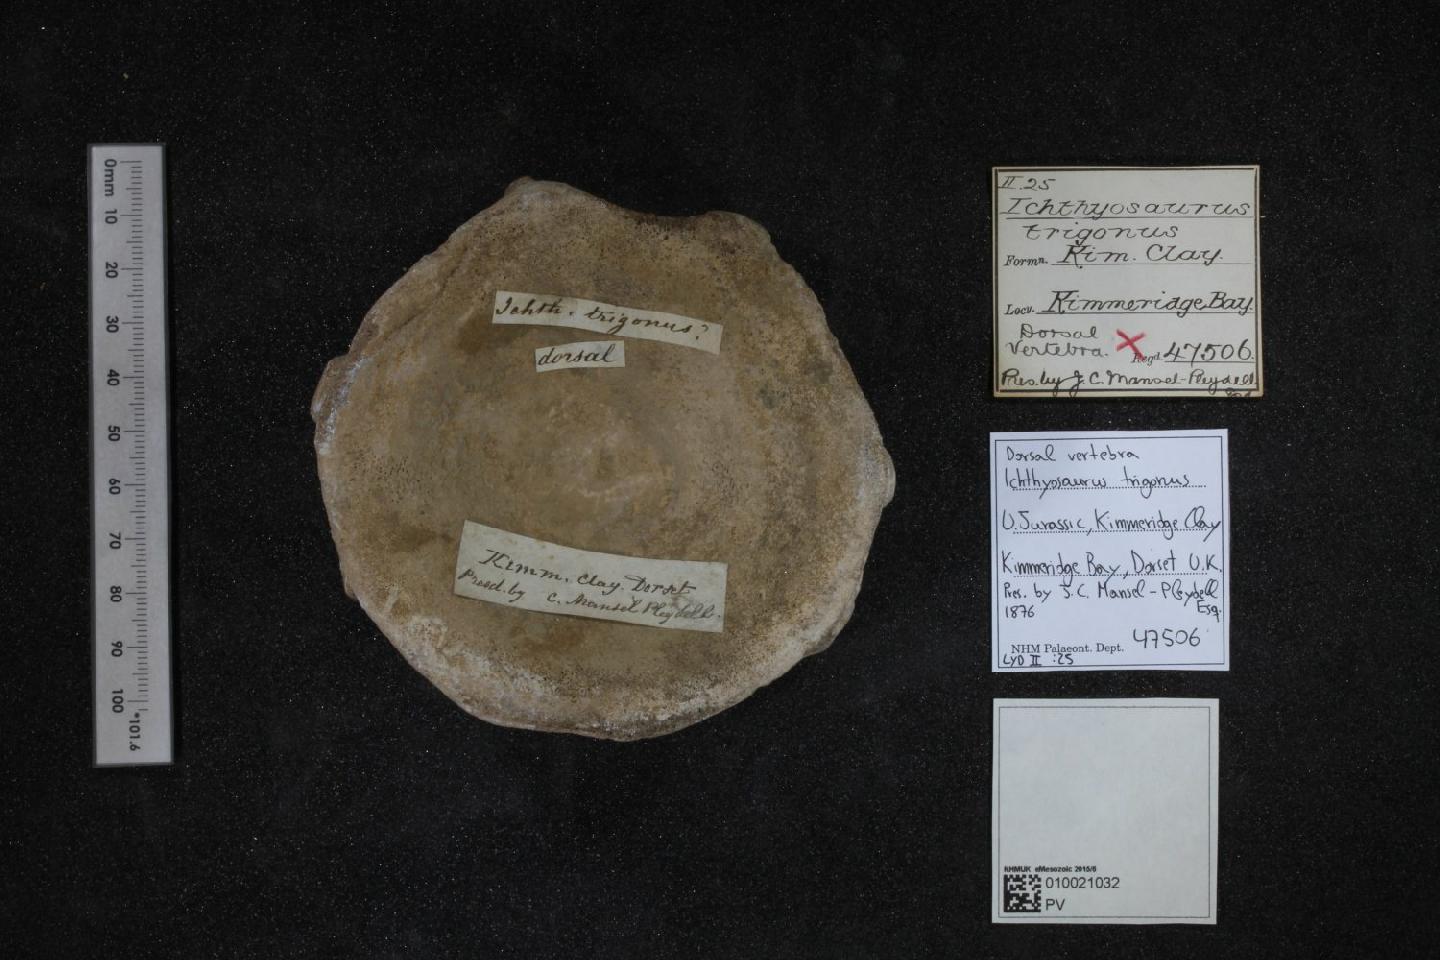 0mm
10
20
30
40
50
60
70
80
90
100
*101.6
Ichth. trigonus?
dorsal
Kimm. Clay. Dorset
Presd. by C. Mansel Pleydell.
II.25
Ichthyosaurus
trigonus
Formn. Kim. Clay.
Locy. Kimmeridge Bay.
Dorsal
Vertebra. X Regd. 47506.
Pres. by J. C. Mansel-Pleydell.
Dorsal vertebra
Ichthyosaurus trigonus
U. Jurassic, Kimmeridge Clay
Kimmeridge Bay, Dorset U.K.
Pres. by J. C. Mansel-Pleydell
1876 Esq.
NHM Palaeont. Dept. 47506
LYD II :25
NHMUK eMesozoic 2015/6
010021032
PV